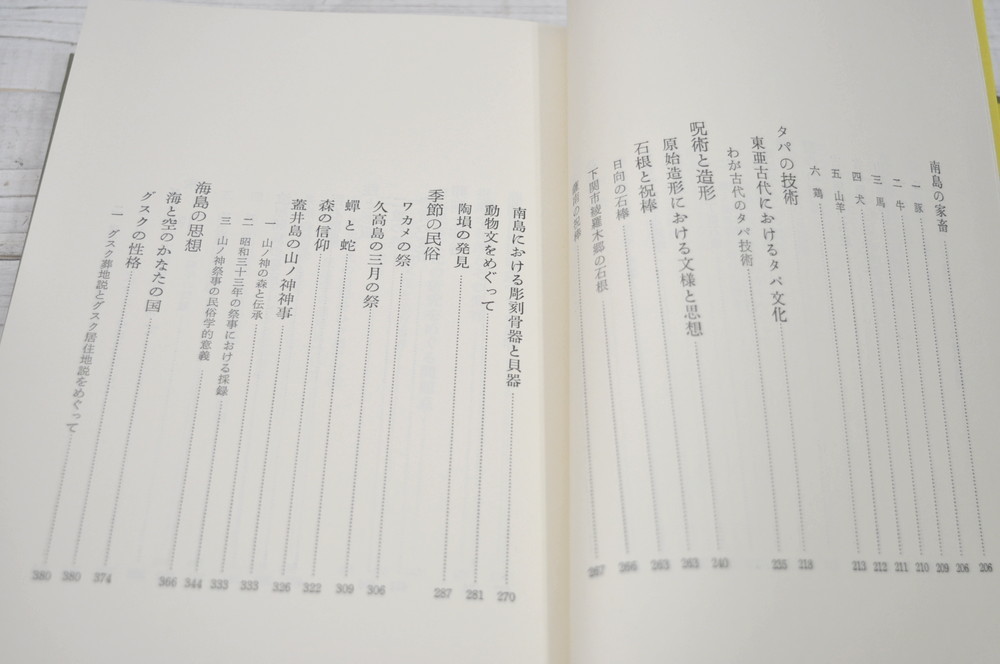 南島の家畜 206
一 豚 206
二 牛 209
三 馬 210
四 犬 211
五 山羊 212
六 鶏 213
タパの技術
東亜古代におけるタパ文化 218
わが古代のタパ技術 235
呪術と造形
原始造形における文様と思想 240
石根と祝棒 263
日向の石棒 263
下関市綾羅木郷の石根 266
267
南島における彫刻骨器と貝器 270
動物文をめぐって 281
陶塤の発見 287
季節の民俗
ワカメの祭 306
久高島の三月の祭 309
蟬と蛇 322
森の信仰 326
蓋井島の山ノ神神事 333
一 山ノ神の森と伝承 333
二 昭和三十三年の祭事における採録 344
三 山ノ神祭事の民俗学的意義 366
海島の思想
海と空のかなたの国 374
グスクの性格 380
一 グスク葬地説とグスク居住地説をめぐって 380